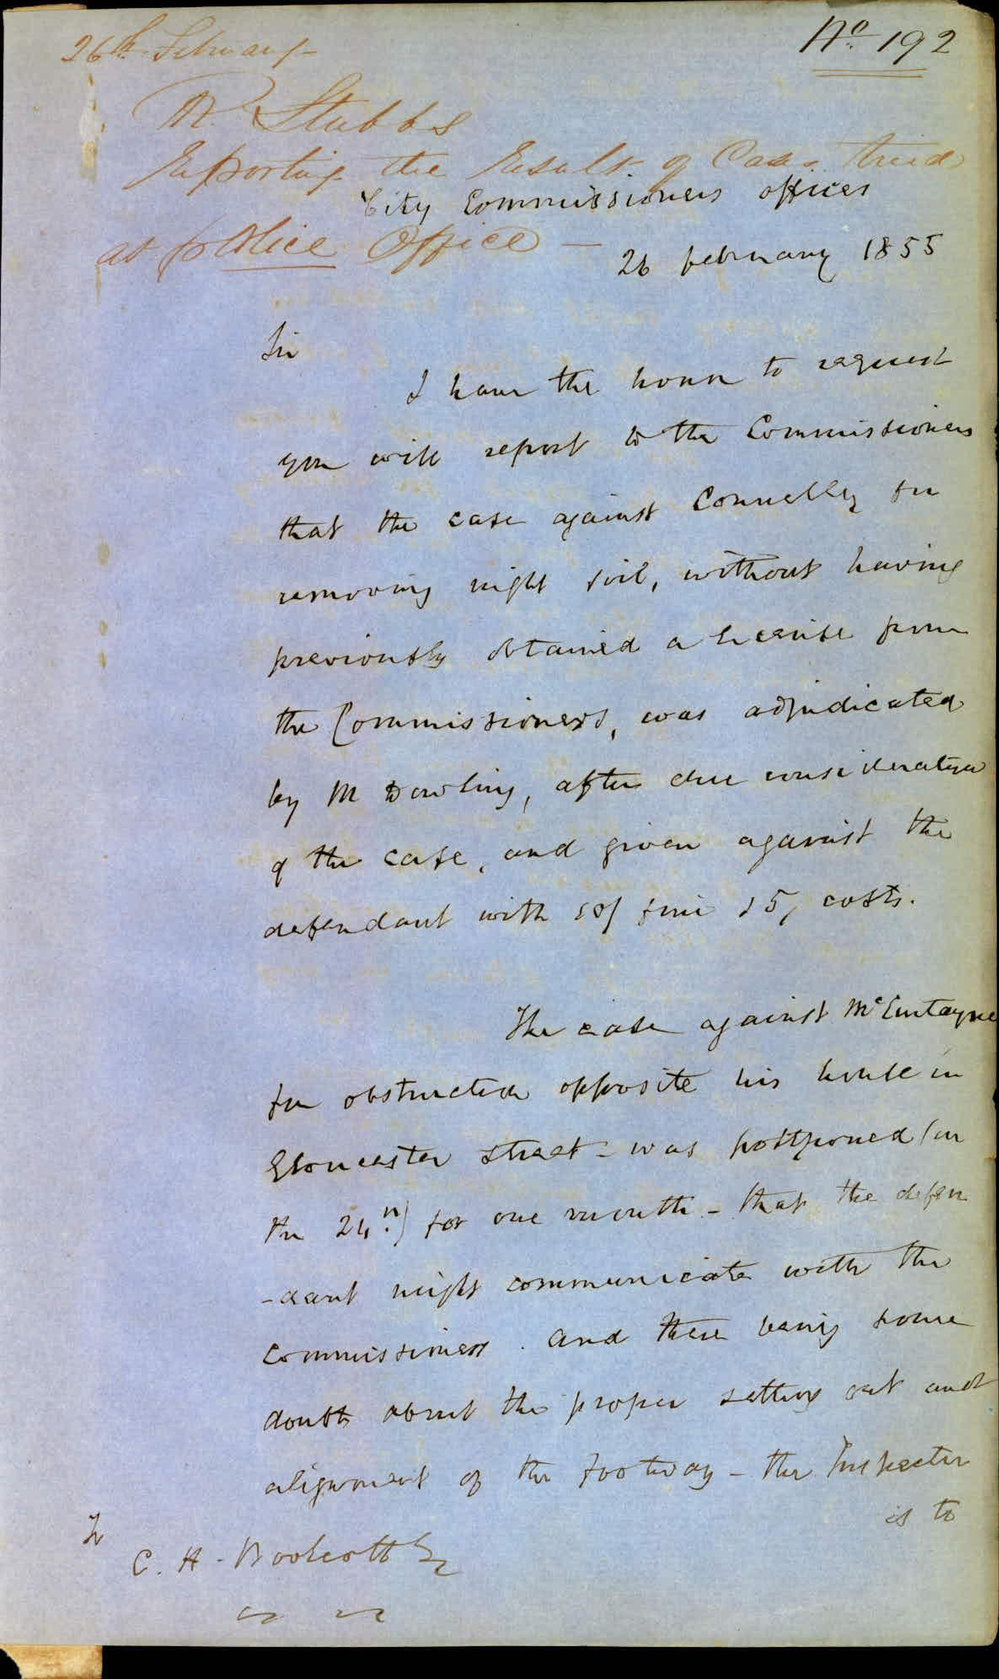 No. 192
26th February
W. Stubbs
Reporting the Result of Cases tried
at police Office —
City Commissioners offices
26 february 1855
Sir
I have the honor to request
you will report to the Commissioners
that the case against Connelly for
removing night soil, without having
previously obtained a license from
the Commissioners, was adjudicated
by Mr Dowling, after due consideration
of the case, and given against the
defendant with 10/ fine 15/ costs.
The case against McEntayne
for obstruction opposite his house in
Gloucester Street - was postponed (on
the 24th) for one month - that the defen
-dant might communicate with the
Commissioners. and there being some
doubts about the proper setting out and
alignment of the footway - the Inspector
is to
C. H. Woolcott Esq